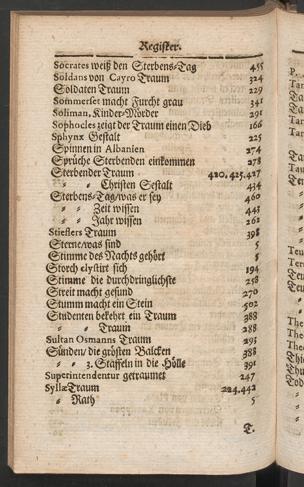 Register.
Socrates weiß den Sterbens-Tag 455
Soldans von Cayro Traum 324
Soldaten Traum 229
Sommerset macht Furcht grau 341
Soliman, Kinder-Mörder 291
Sophocles zeigt der Traum einen Dieb 166
Sphynx Gestalt 225
Spinnen in Albanien 274
Sprüche Sterbenden einkommen 278
Sterbender Traum 420. 425. 427
= = Christen Gestalt 434
Sterbens-Tag/was er sey 460
= = Zeit wissen 445
= = Jahr wissen 262
Stieflers Traum 398
Sterne/was sind 5
Stimme des Nachts gehört 8
Storch clystirt sich 194
Stimme die durchdringlichste 258
Streit macht gesund 270
Stumm macht ein Stein 502
Studenten bekehrt ein Traum 388
= = Traum 288
Sultan Osmanns Traum 293
Sünden/die grösten Balcken 388
= = 3. Staffeln in die Hölle 391
Superintendentur getraumet 247
Syllæ Traum 224. 442
= Rath 5
T.